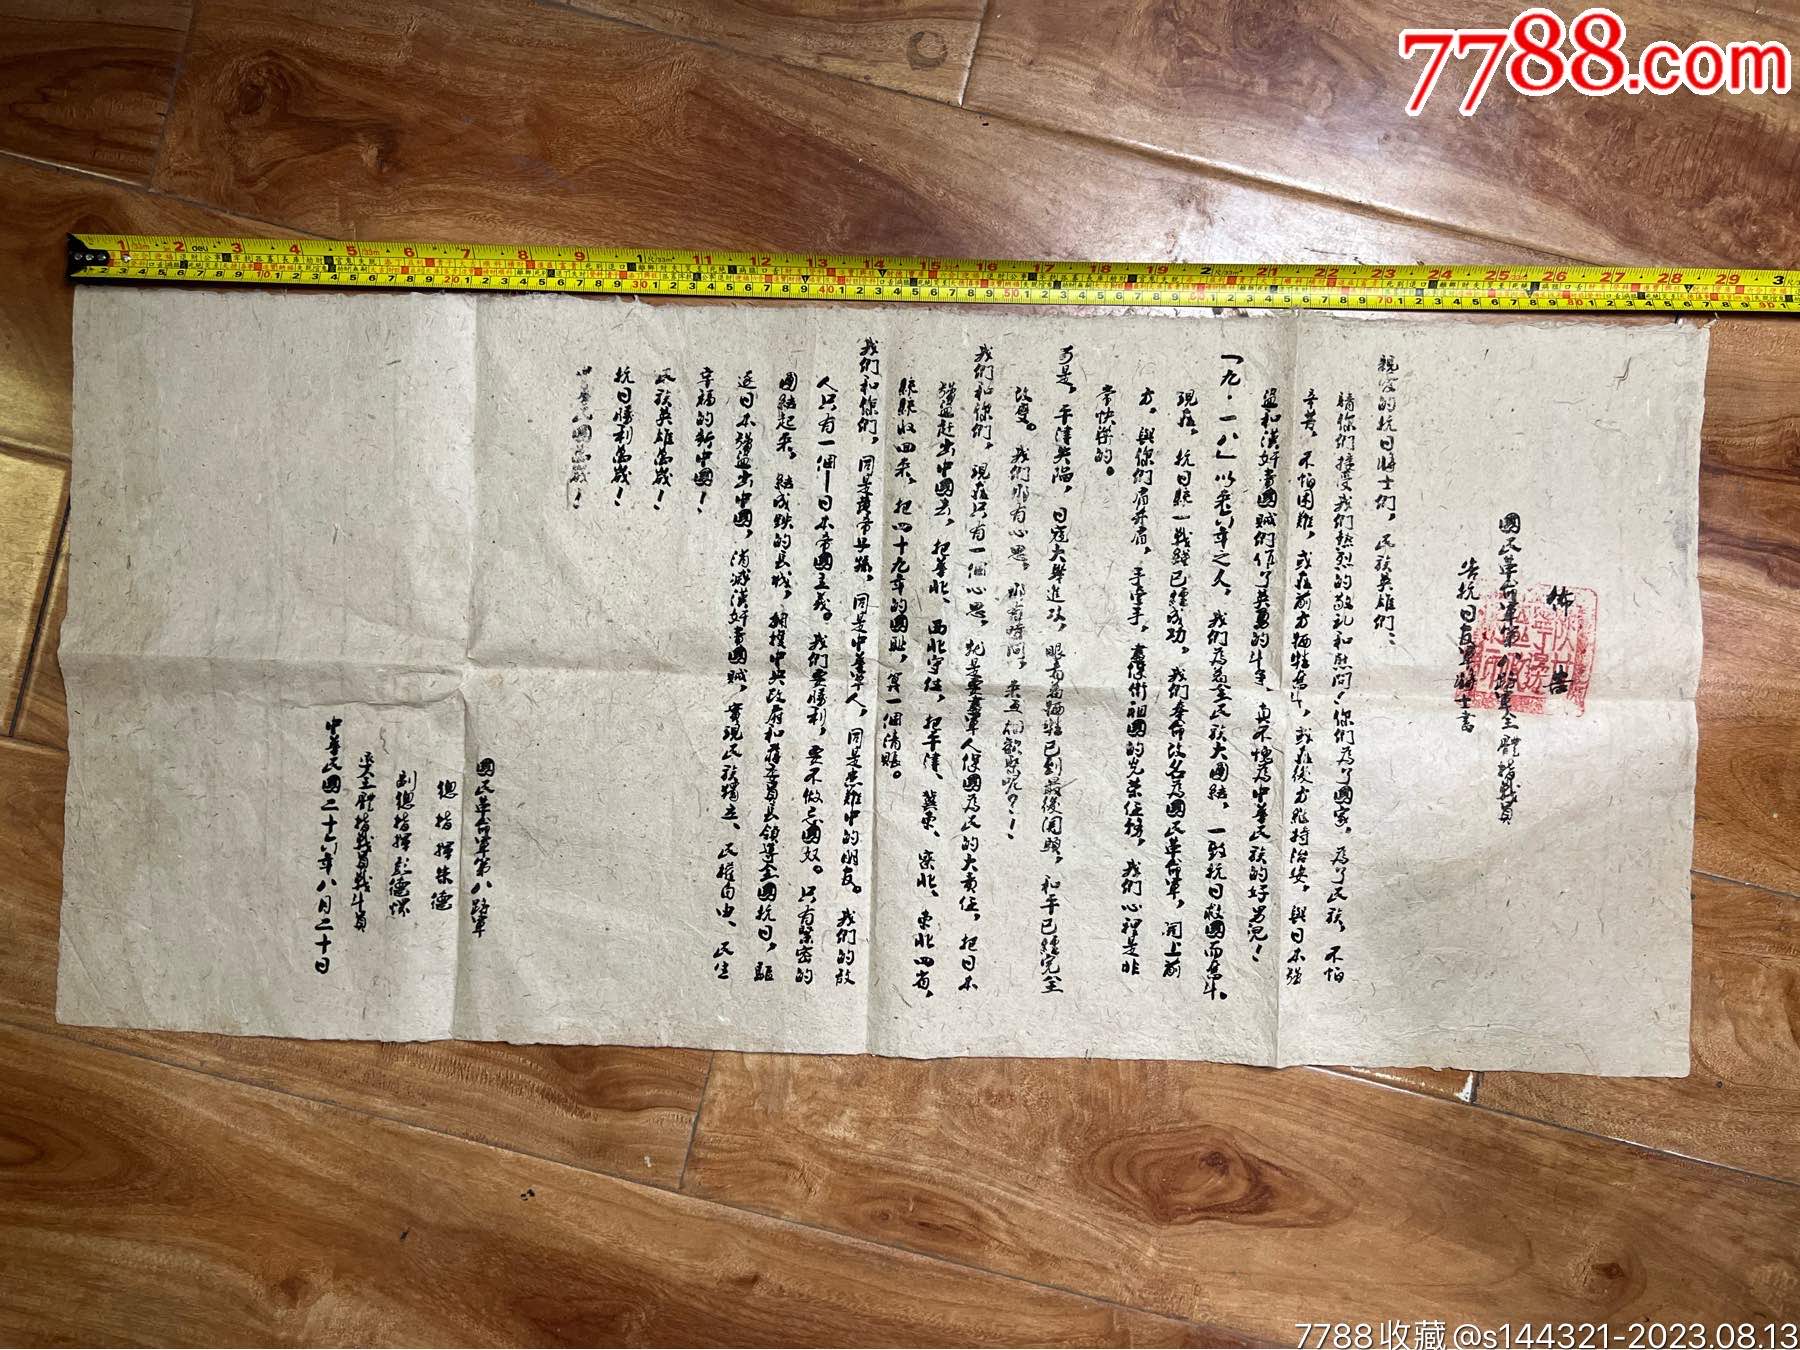 7788.com
佈告
國民革命軍第八路軍全體指戰員
告抗日友軍將士書
親愛的抗日將士們，民族英雄們：
請你們接受我們熱烈的敬礼和慰問！你們為了國家，為了民族，不怕
辛苦，不怕困难，或在前方牺牲奮斗，或在後方維持治安，與日本强
盗和漢奸賣國賊們作了英勇的斗争，真不愧為中華民族的好男兒！
「九·一八」以来六年之久，我們為着全民族大團結，一致抗日救國而奮斗。
現在，抗日統一戰綫已經成功，我們奉命改名為國民革命軍，開上前
方，與你們肩并肩，手牵手，盡保衛祖國的光荣任務，我們心裡是非
常快樂的。
可是，平津失陷，日寇大舉進攻，眼看着牺牲已到最後関頭，和平已經完全
故變。我們那有心思，那有時間，来互相歡聚呢？！
我們和你們，現在只有一個心思，就是要盡軍人保國為民的大責任，把日本
强盗赶出中國去，把華北、西北守住，把平津、冀東、察北、東北四省，
統統收回来，把四十九年的國恥，算一個清賬。
我們和你們，同是黄帝子孫，同是中華軍人，同是患难中的朋友。我們的敌
人只有一個—日本帝國主義。我們要勝利，要不做亡國奴。只有緊密的
團結起来，結成鉄的長城，擁護中央政府和蔣委員長領導全國抗日，驅
逐日本强盗出中國，消滅漢奸賣國賊，實現民族獨立、民權自由、民生
幸福的新中國！
民族英雄萬歲！
抗日勝利萬歲！
中華民國萬歲！
國民革命軍第八路軍
總指揮朱德
副總指揮彭德懷
及全體指戰員戰斗員
中華民國二十六年八月二十日
7788收藏@s144321-2023.08.13